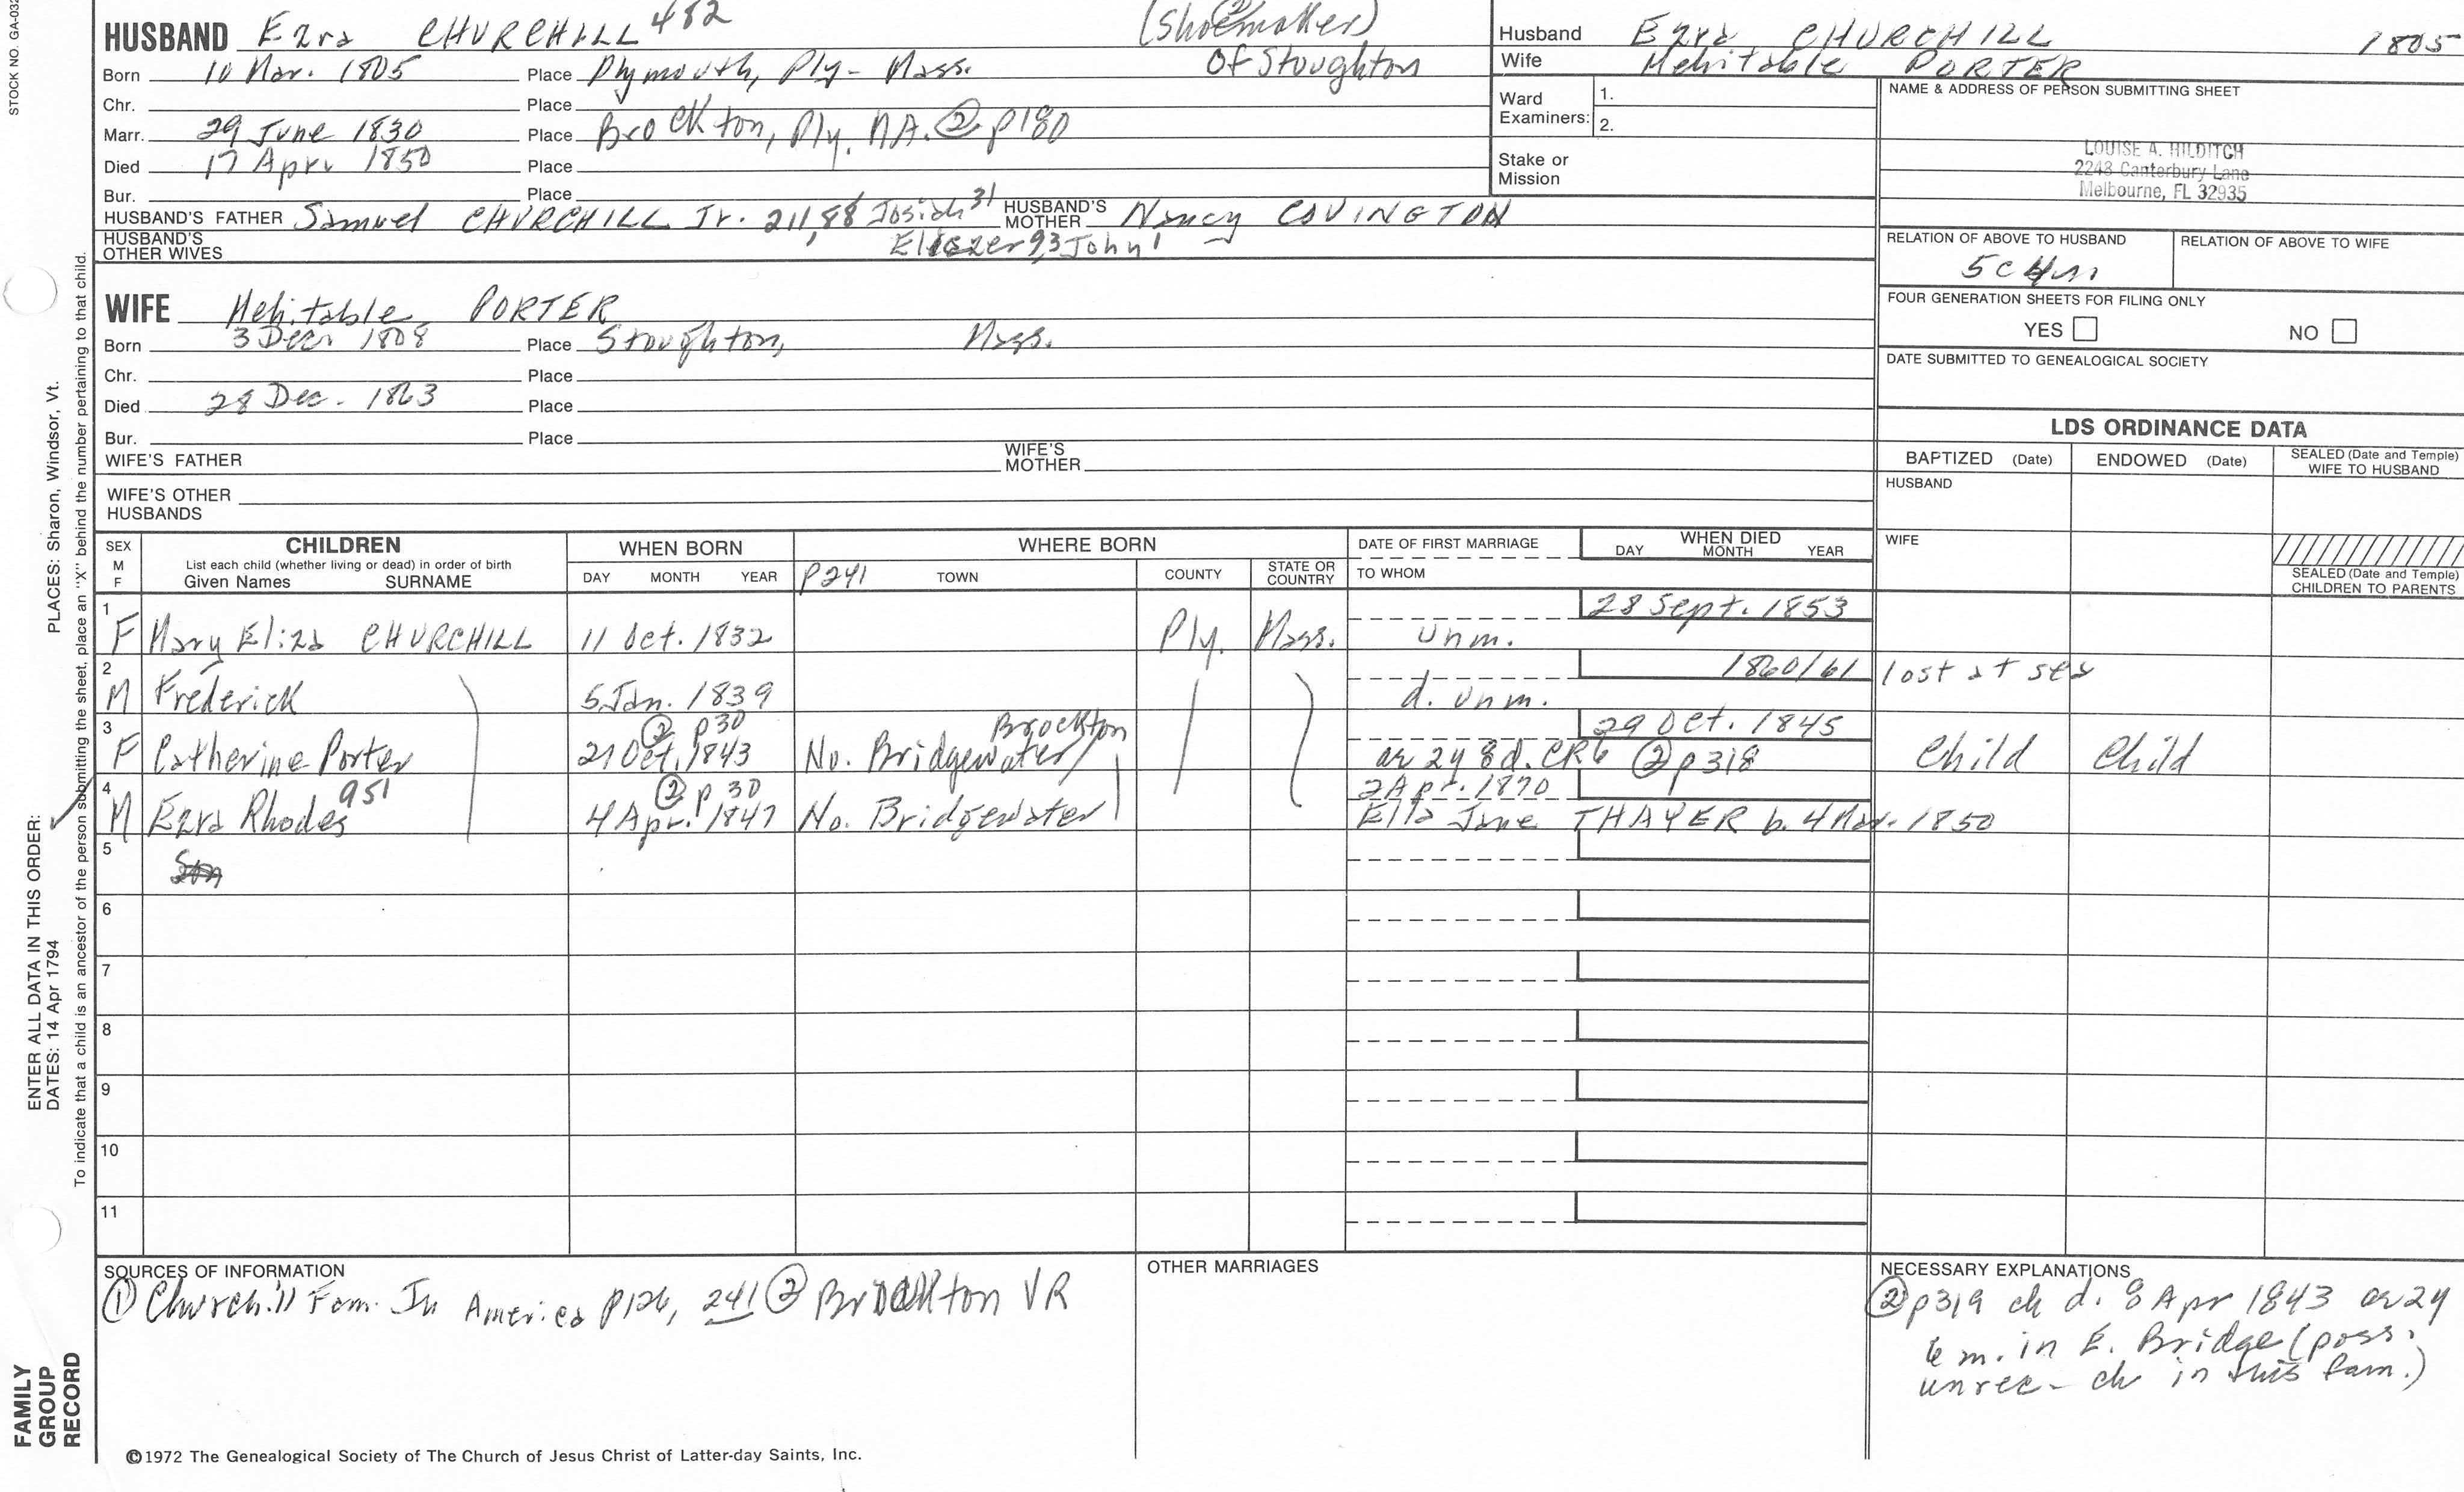 STOCK NO. GA-032
HUSBAND Ezra CHURCHILL 482 (Shoemaker)
Born 10 Mar. 1805 Place Plymouth, Ply- Mass. Of Stoughton
Chr. Place
Marr. 29 June 1830 Place Brockton, Ply. MA. ② p180
Died 17 Apr. 1850 Place
Bur. Place
HUSBAND'S FATHER Samuel CHURCHILL Jr. 211, 88 Josiah 31 HUSBAND'S MOTHER Nancy COVINGTON
HUSBAND'S OTHER WIVES Eliezer 9,3 John 1
Husband Ezra CHURCHILL 1805
Wife Mehitable PORTER
Ward Examiners: 1.
2.
Stake or Mission
NAME & ADDRESS OF PERSON SUBMITTING SHEET
LOUISE A. HILDITCH
2248 Canterbury Lane
Melbourne, FL 32935
RELATION OF ABOVE TO HUSBAND RELATION OF ABOVE TO WIFE
5c
FOUR GENERATION SHEETS FOR FILING ONLY
YES NO
DATE SUBMITTED TO GENEALOGICAL SOCIETY
WIFE Mehitable PORTER
Born 3 Dec. 1808 Place Stoughton, Mass.
Chr. Place
Died 28 Dec. 1863 Place
Bur. Place
WIFE'S FATHER WIFE'S MOTHER
WIFE'S OTHER HUSBANDS
LDS ORDINANCE DATA
BAPTIZED (Date) ENDOWED (Date) SEALED (Date and Temple) WIFE TO HUSBAND
HUSBAND
WIFE
SEALED (Date and Temple) CHILDREN TO PARENTS
SEX M F
CHILDREN
List each child (whether living or dead) in order of birth
Given Names SURNAME
WHEN BORN
DAY MONTH YEAR
WHERE BORN
P241 TOWN COUNTY STATE OR COUNTRY
DATE OF FIRST MARRIAGE
TO WHOM
WHEN DIED
DAY MONTH YEAR
1 28 Sept. 1853
F Mary Eliza CHURCHILL 11 Oct. 1832 Ply. Mass. unm.
2 1860/61 lost at sea
M Frederick 5 Jan. 1839 d. unm.
3 ② p30 Brockton 29 Oct. 1845
F Catherine Porter 21 Oct. 1843 No. Bridgewater ae 2y 8d. CR6 ② p318 Child Child
4 951 ② p 30 2 Apr. 1870
M Ezra Rhodes 4 Apr. 1847 No. Bridgewater Ella Jane THAYER b. 4 Mar. 1850
5
Son
6
7
8
9
10
11
SOURCES OF INFORMATION
① Churchill Fam. In America P126, 241 ② Brockton VR
OTHER MARRIAGES
NECESSARY EXPLANATIONS
② p319 ch d. 8 Apr 1843 ae 2y
6 m. in E. Bridge (poss.
unrec- ch in this fam.)
©1972 The Genealogical Society of The Church of Jesus Christ of Latter-day Saints, Inc.
FAMILY GROUP RECORD
ENTER ALL DATA IN THIS ORDER:
DATES: 14 Apr 1794
PLACES: Sharon, Windsor, Vt.
To indicate that a child is an ancestor of the person submitting the sheet, place an "X" behind the number pertaining to that child.